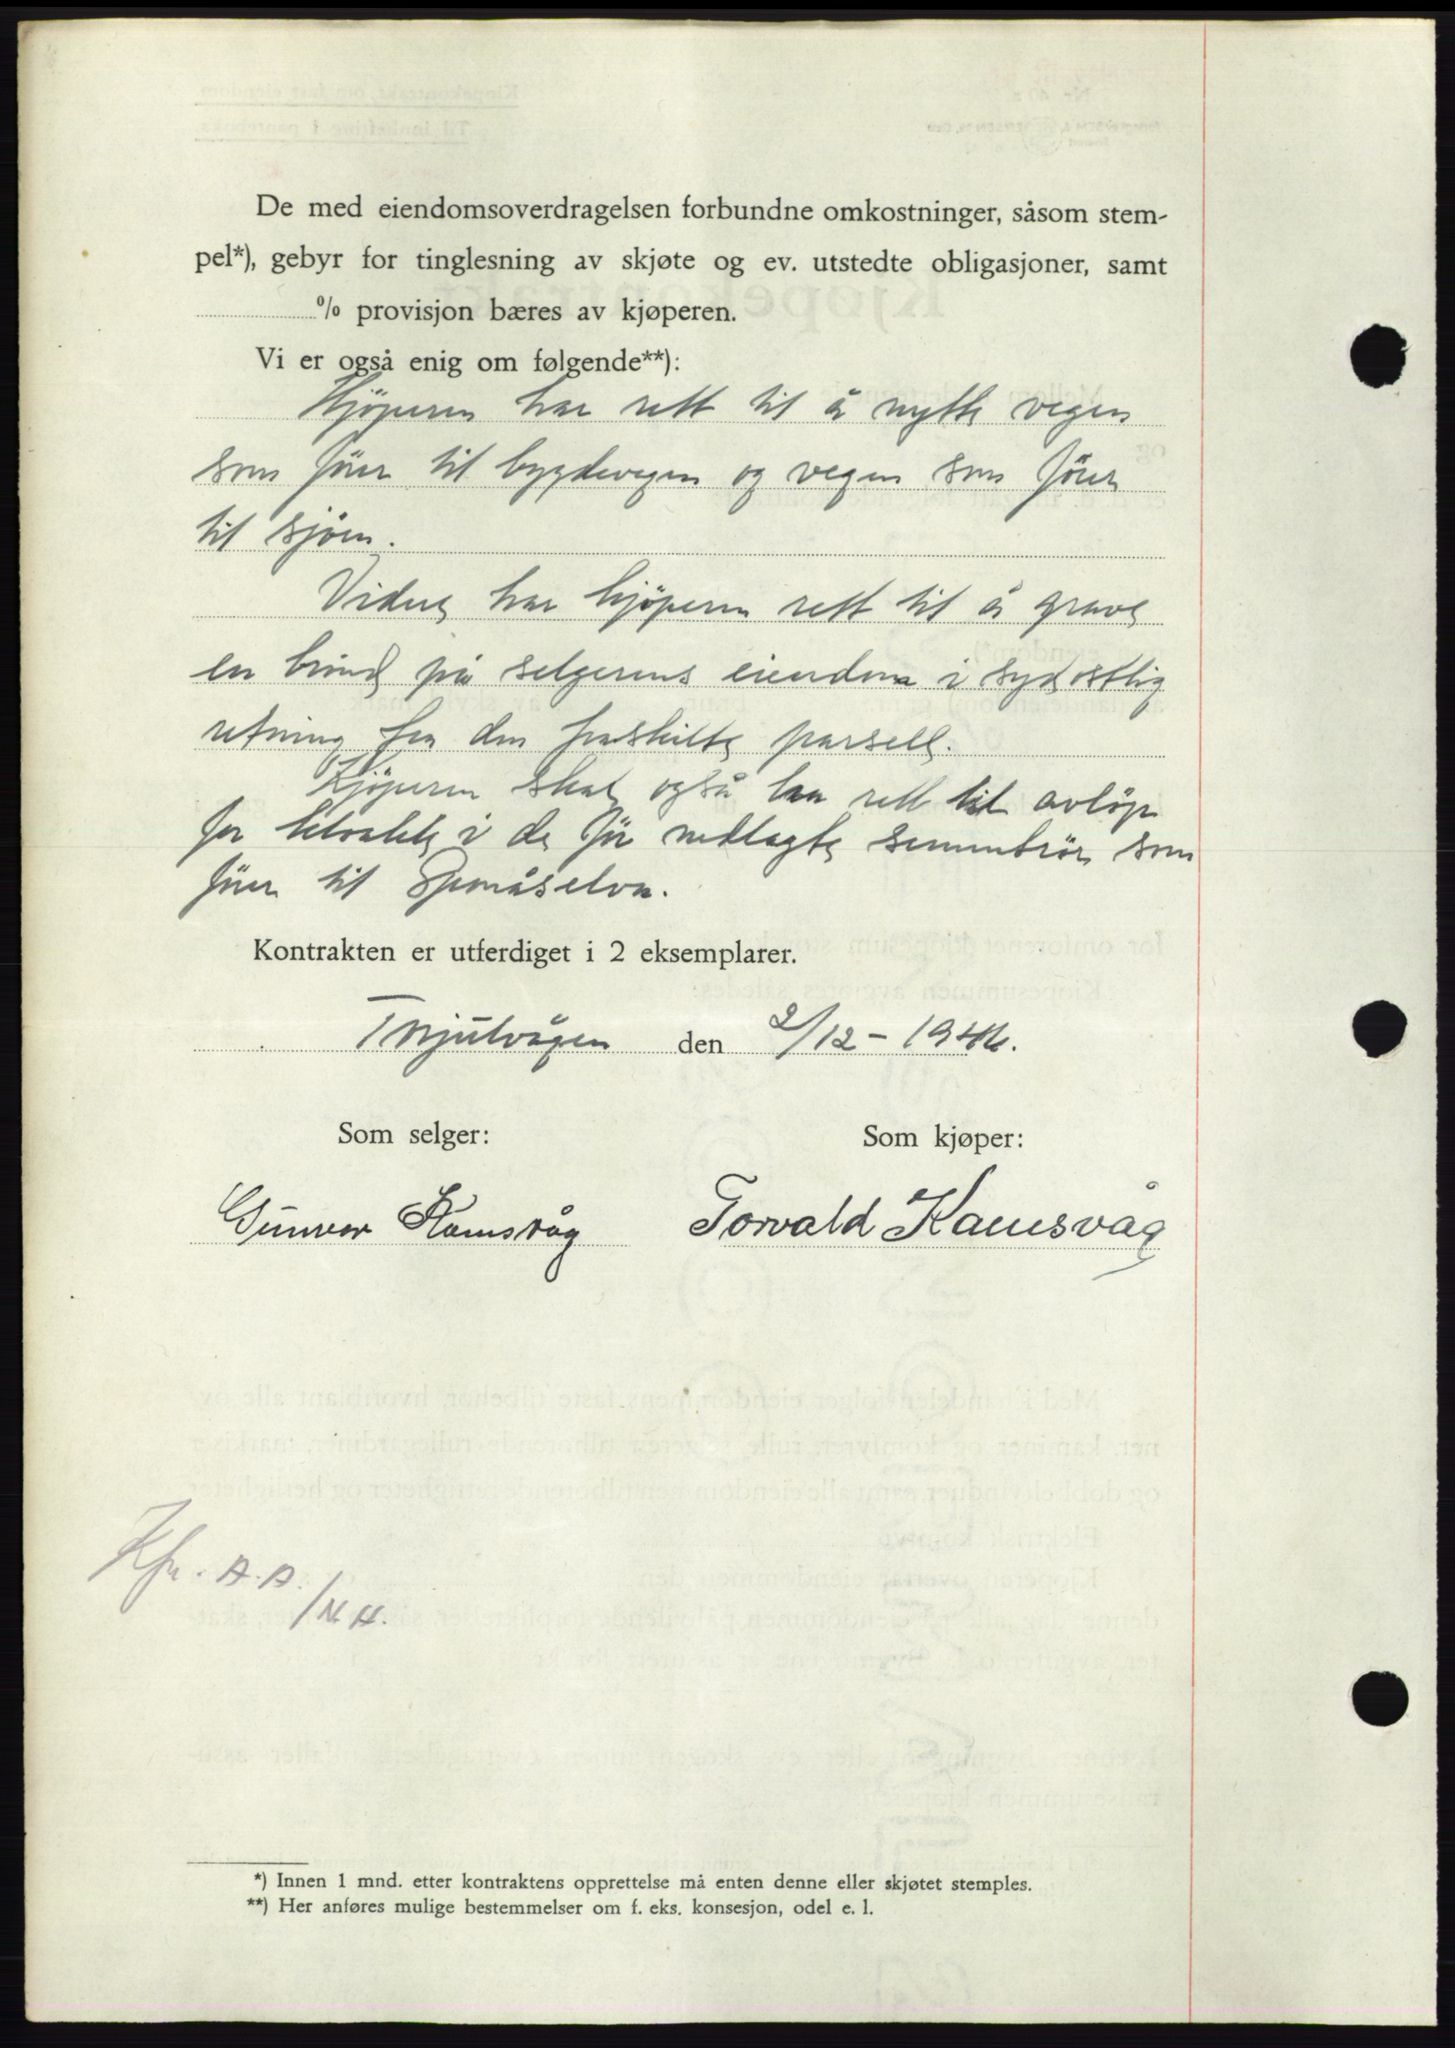 De med eiendomsoverdragelsen forbundne omkostninger, såsom stem-
pel*), gebyr for tinglesning av skjøte og ev. utstedte obligasjoner, samt
% provisjon bæres av kjøperen.
Vi er også enig om følgende**):
Kjöperen har rett til å nytte vegen
som förer til bygdevegen og vegen som förer
til sjöen.
Videre har kjöperen rett til å grave
en brönd på selgerens eiendom i sydostlig
retning fra den fraskilte parsell.
Kjöperen skal også ha rett til avlöp
for i de för nedlagte sementrör som
förer til
Kontrakten er utferdiget i 2 eksemplarer.
den 2/12-1946.
Som selger:
Som kjøper:
Gunvor Kamsvåg
Torvald Kamsvåg
Kfr. A.A.
/N.H.
*) Innen 1 mnd. etter kontraktens opprettelse må enten denne eller skjøtet stemples.
**) Her anføres mulige bestemmelser om f. eks. konsesjon, odel e. l.